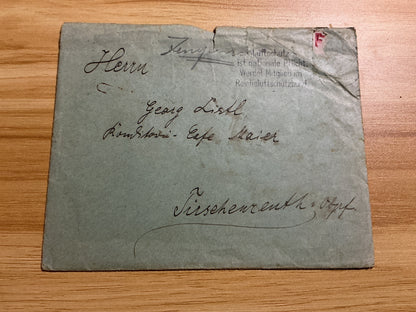 Luftschutz
ist nationale Pflicht
Werdet Mitglied im
Reichsluftschutzbund
F
Herrn
Georg Listl
Konditorei-Cafe Maier
Tirschenreuth Opf